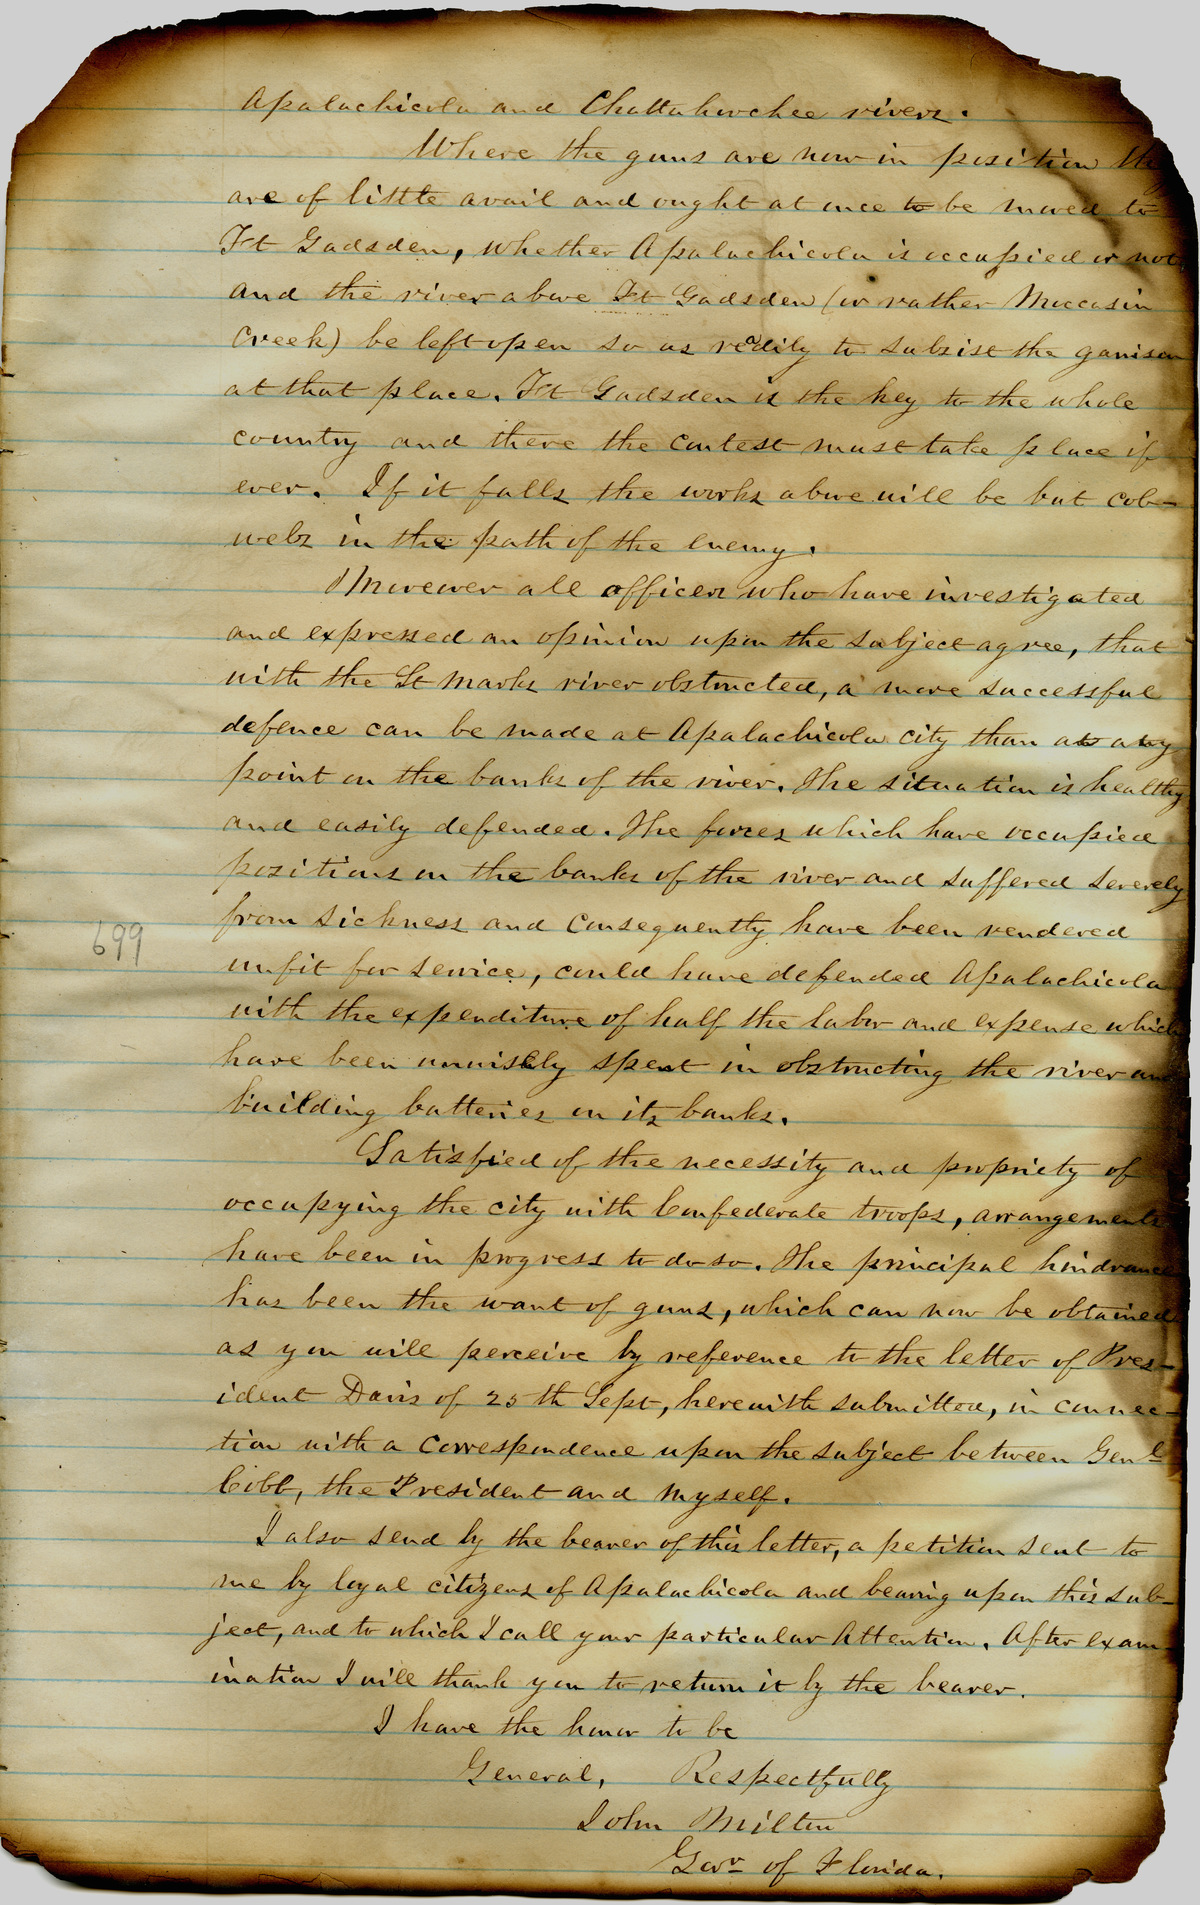 Apalachicola and Chattahoochee rivers.
Where the guns are now in position
are of little avail and ought at once to be moved to
Ft Gadsden, whether Apalachicola is occupied or not,
and the river above Ft Gadsden (or rather Moccasin
Creek) be left open so as readily to subsist the garrison
at that place. Ft Gadsden is the key to the whole
country and there the contest must take place if
ever. If it falls the works above will be but cob-
webs in the path of the enemy.
Moreover all officers who have investigated
and expressed an opinion upon the subject agree, that
with the St Marks river obstructed, a more successful
defence can be made at Apalachicola city than at any
point on the banks of the river. The situation is healthy
and easily defended. The forces which have occupied
positions on the banks of the river and suffered severely
from sickness and consequently have been rendered
unfit for service, could have defended Apalachicola
699
with the expenditure of half the labor and expense which
have been unwisely spent in obstructing the river and
building batteries on its banks.
Satisfied of the necessity and propriety of
occupying the city with Confederate troops, arrangements
have been in progress to do so. The principal hindrance
has been the want of guns, which can now be obtained
as you will perceive by reference to the letter of Pres-
ident Davis of 25th Sept, herewith submitted, in connec-
tion with a correspondence upon the subject between Genl
Cobb, the President and myself.
I also send by the bearer of this letter, a petition sent to
me by loyal citizens of Apalachicola and bearing upon this sub-
ject, and to which I call your particular Attention. After exam-
ination I will thank you to return it by the bearer.
I have the honor to be
General, Respectfully
John Milton
Govr of Florida.